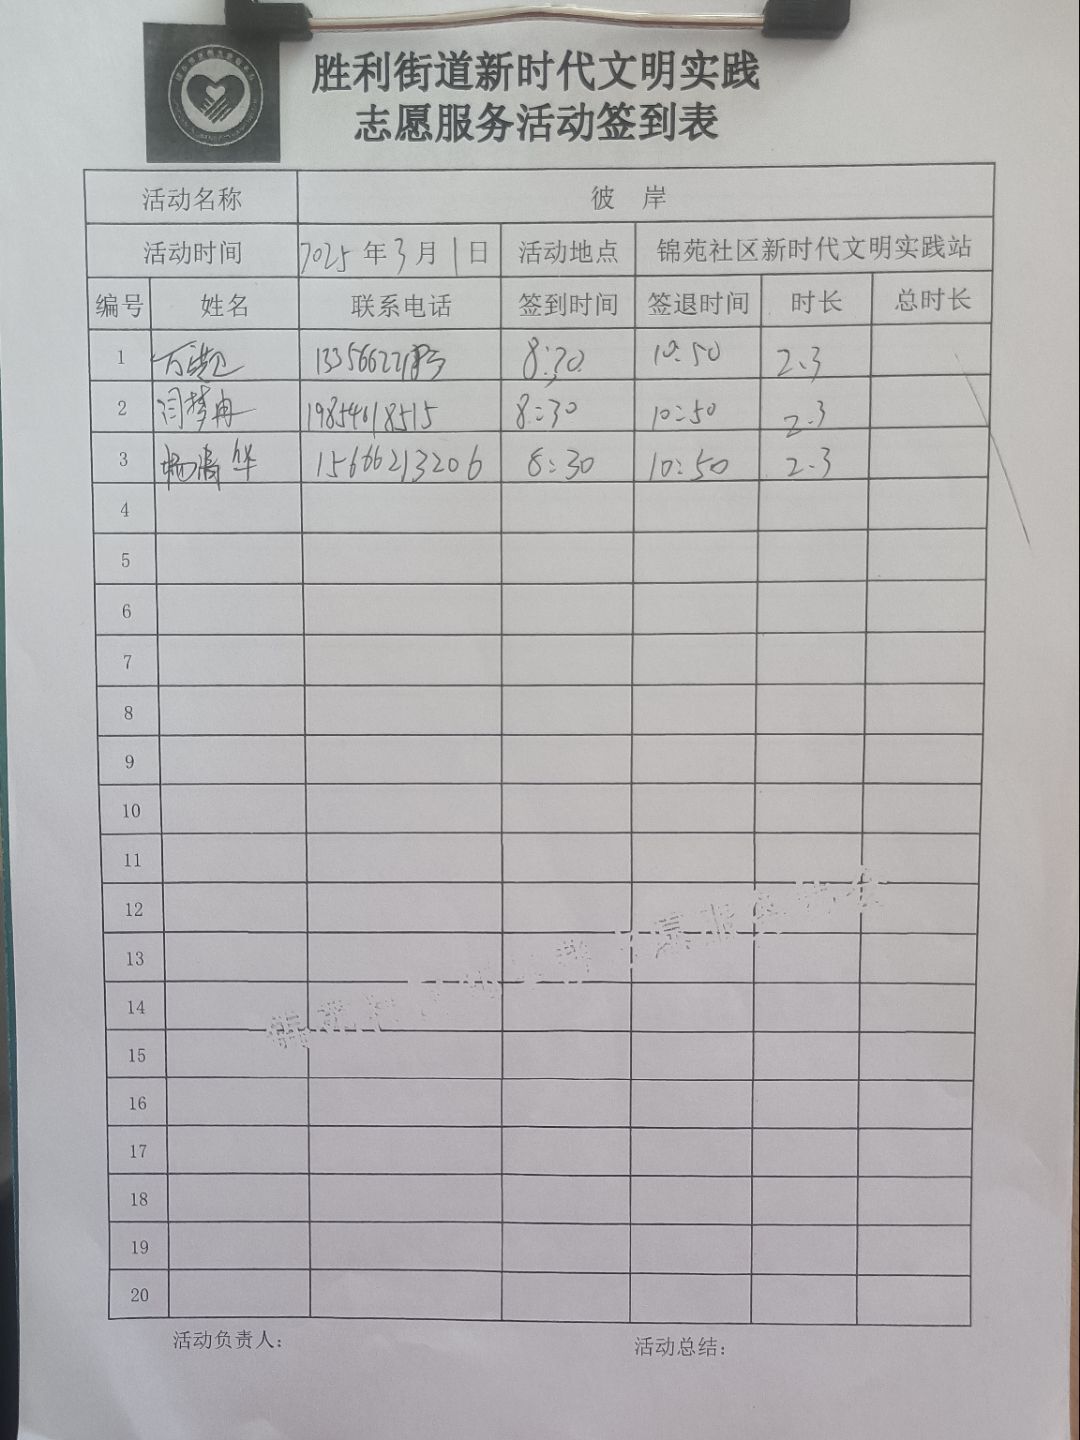 胜利街道新时代文明实践
志愿服务活动签到表
活动名称 彼 岸
活动时间 2025年3月1日 活动地点 锦苑社区新时代文明实践站
编号 姓名 联系电话 签到时间 签退时间 时长 总时长
1 8:30 10:50 2.3
2 闫梦冉 19854018515 8:30 10:50 2.3
3 华 15666213206 8:30 10:50 2.3
4
5
6
7
8
9
10
11
12
13
14
15
16
17
18
19
20
活动负责人: 活动总结: